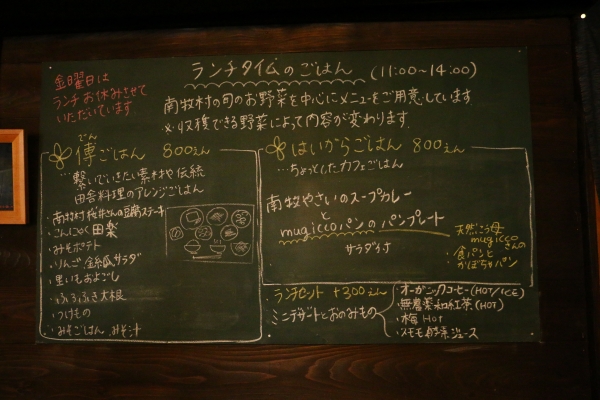 金曜日は
ランチお休みさせて
いただいています。
ランチタイムのごはん (11:00~14:00)
南牧村の旬のお野菜を中心にメニューをご用意しています。
※収穫できる野菜によって内容が変わります。
でん
傳ごはん 800えん
…繋いでいきたい素材や伝統
田舎料理のアレンジごはん
・南牧村桜井さんの豆腐ステーキ
・こんにゃく田楽
・みそポテト
・りんご、金糸瓜サラダ
・里いもおよごし
・ふろふき大根
・つけもの
・みそごはん、みそ汁
はいからごはん 800えん
…ちょっとしたカフェごはん
南牧やさいのスープカレー
と
mugiccoパンのパンプレート
サラダ付
天然こう母
mugicco
さんの
・食パンと
かぼちゃパン
ランチセット +300えん
ミニデザートとおのみもの
・オーガニックコーヒー(HOT/ICE)
・無農薬和紅茶(HOT)
・梅 HOT
・スモモ酵素ジュース